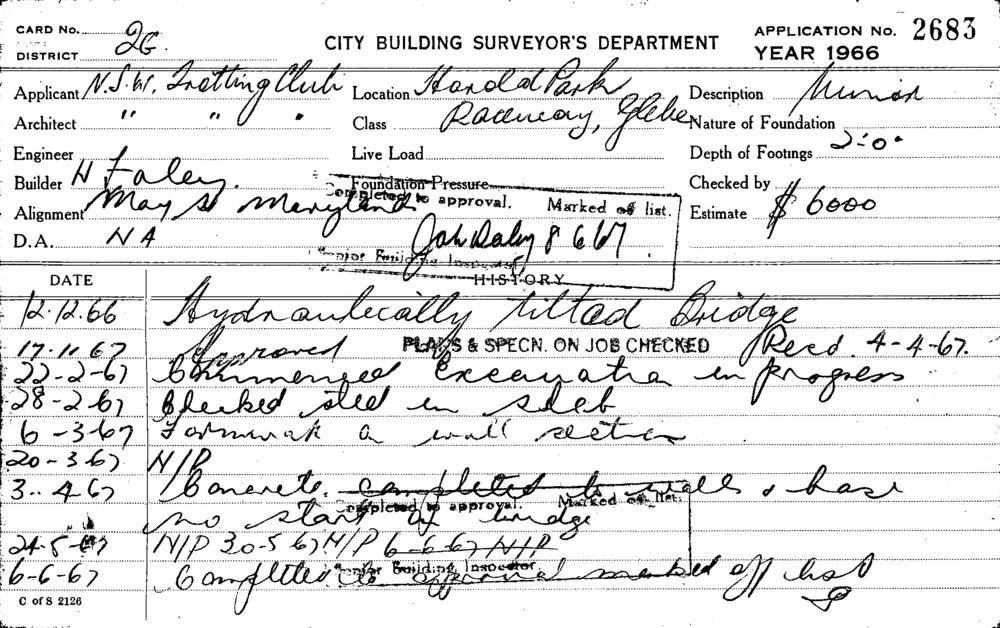 CARD No.
2G.
DISTRICT
CITY BUILDING SURVEYOR'S DEPARTMENT
APPLICATION No. 2683
YEAR 1966
Applicant N.S.W. Trotting Club
Location Harold Park
Description
Architect " " "
Class Raceway, Glebe
Nature of Foundation
Engineer
Live Load
Depth of Footings 2-0"
Builder H Foley.
Foundation Pressure
Checked by
Alignment May St Maryland
Estimate $ 6000
D.A. N A
Completed to approval. Marked off list.
8 6 67
Senior Building Inspector
HISTORY
DATE
12.12.66 Hydraulically tilted Bridge
17.11.67 Approved PLANS & SPECN. ON JOB CHECKED Recd. 4-4-67.
22-2-67 Commenced Excavation in progress
28-2-67 Checked steel in slab
6-3-67 Formwork on wall section
20-3-67 N/P
3.. 4 67 Concrete. completed to walls & base
no start of bridge
Completed to approval. Marked off list.
24-5-67 N/P 30-5 67 N/P 6-6-67 N/P
Senior Building Inspector.
6-6-67 Completed to approval marked off list
C of S 2126